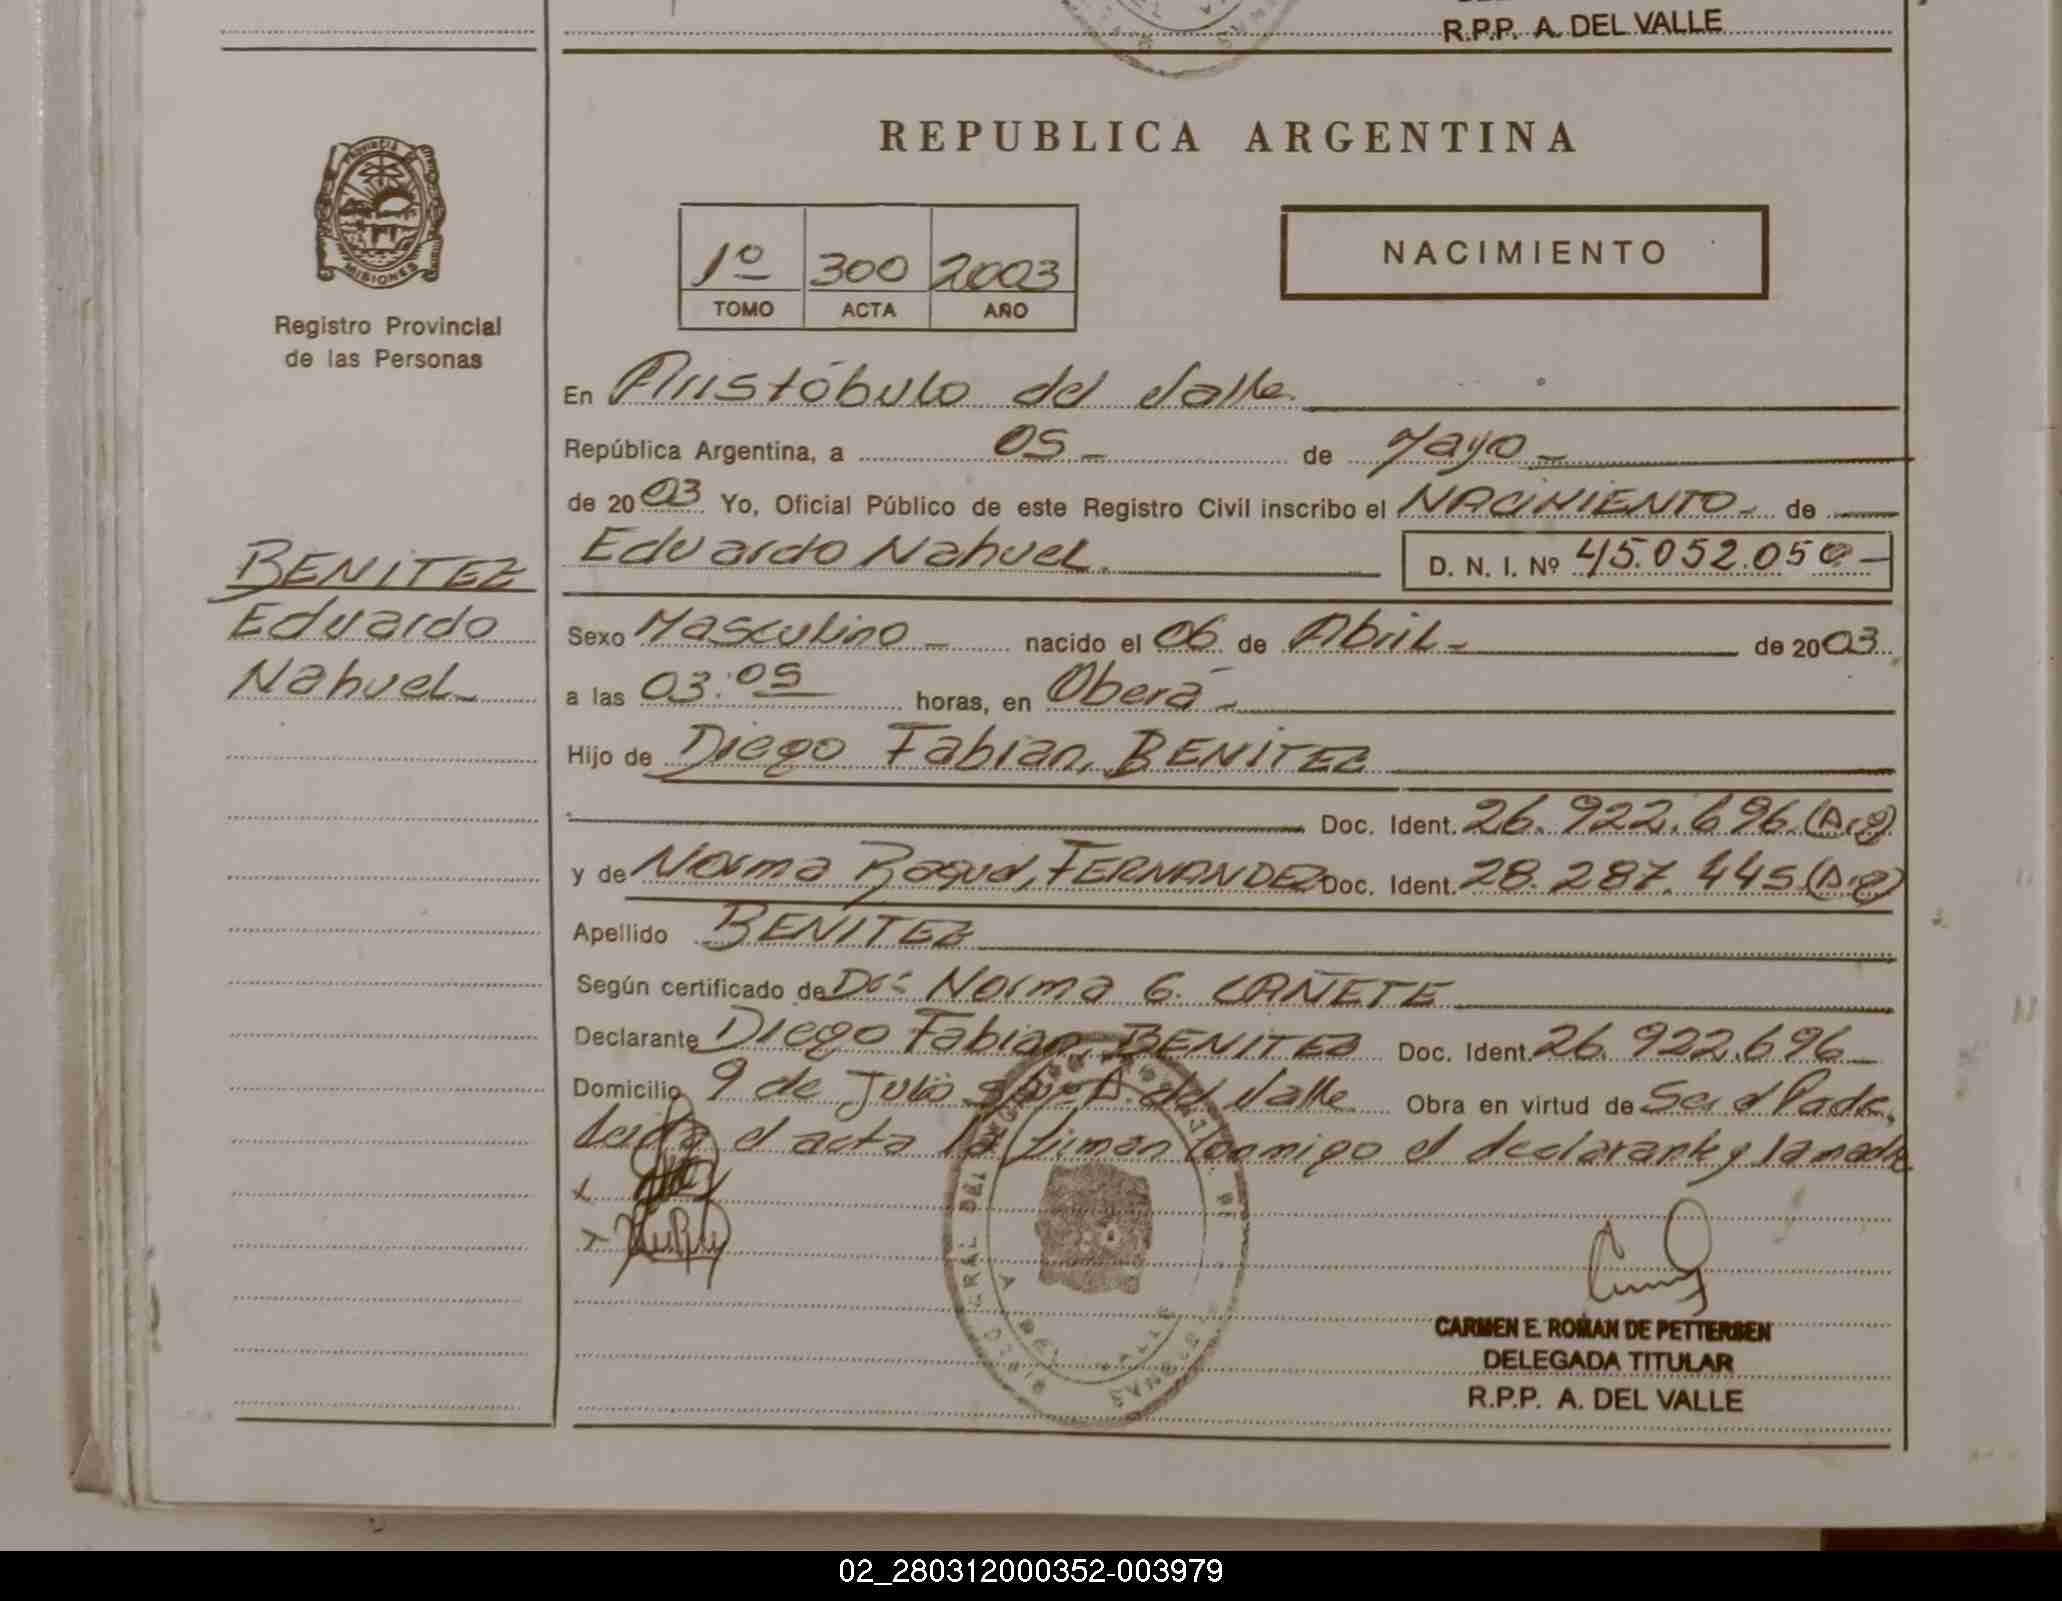 R.P.P. A. DEL VALLE
REPUBLICA ARGENTINA
PROVINCIA DE
MISIONES
Registro Provincial
de las Personas
1º 300 2003
TOMO ACTA AÑO
NACIMIENTO
En Aristóbulo del Valle
República Argentina, a 05 - de Mayo -
de 2003 Yo, Oficial Público de este Registro Civil inscribo el NACIMIENTO - de
Eduardo Nahuel. D. N. I. Nº 45.052.050 -
BENITEZ
Eduardo
Nahuel -
Sexo Masculino - nacido el 06 de Abril - de 2003
a las 03:05 horas, en Oberá -
Hijo de Diego Fabian, BENITEZ
Doc. Ident. 26.922.696
y de Norma Raquel, FERNANDEZ Doc. Ident. 28.287.445
Apellido BENITEZ
Según certificado de Dra Norma G. CAÑETE
Declarante Diego Fabian, BENITEZ Doc. Ident. 26.922.696
Domicilio 9 de Julio A. del Valle Obra en virtud de Ser el Padre.
Leida el acta la firman conmigo el declarante y la madre
CARMEN E. ROMAN DE PETTERSEN
DELEGADA TITULAR
R.P.P. A. DEL VALLE
02_280312000352-003979